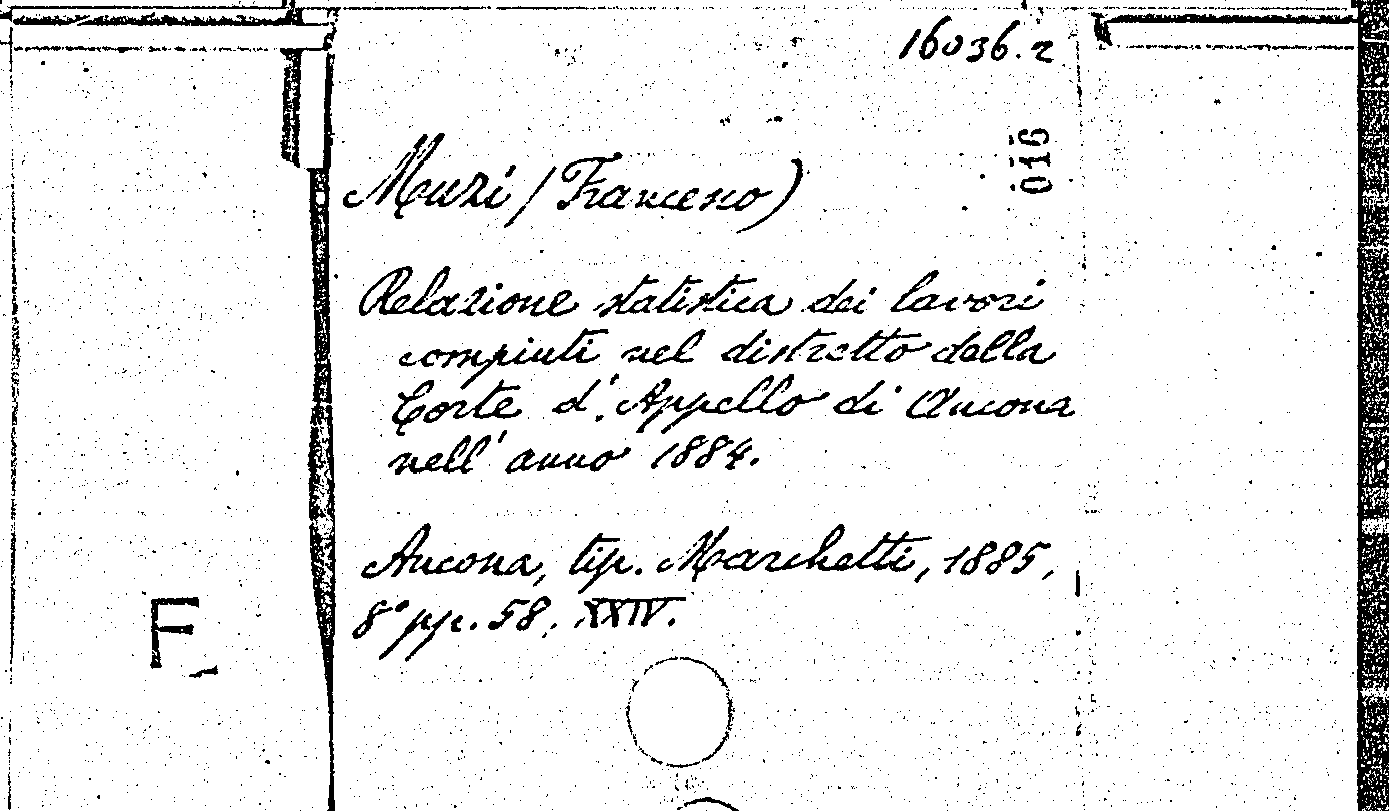 16036.2
016
Muzi (Francesco)
Relazione statistica dei lavori
compiuti nel distretto della
Corte d'Appello di Ancona
nell'anno 1884.
Ancona, tip. Marchetti, 1885,
8° pp. 58, XXIV.
F